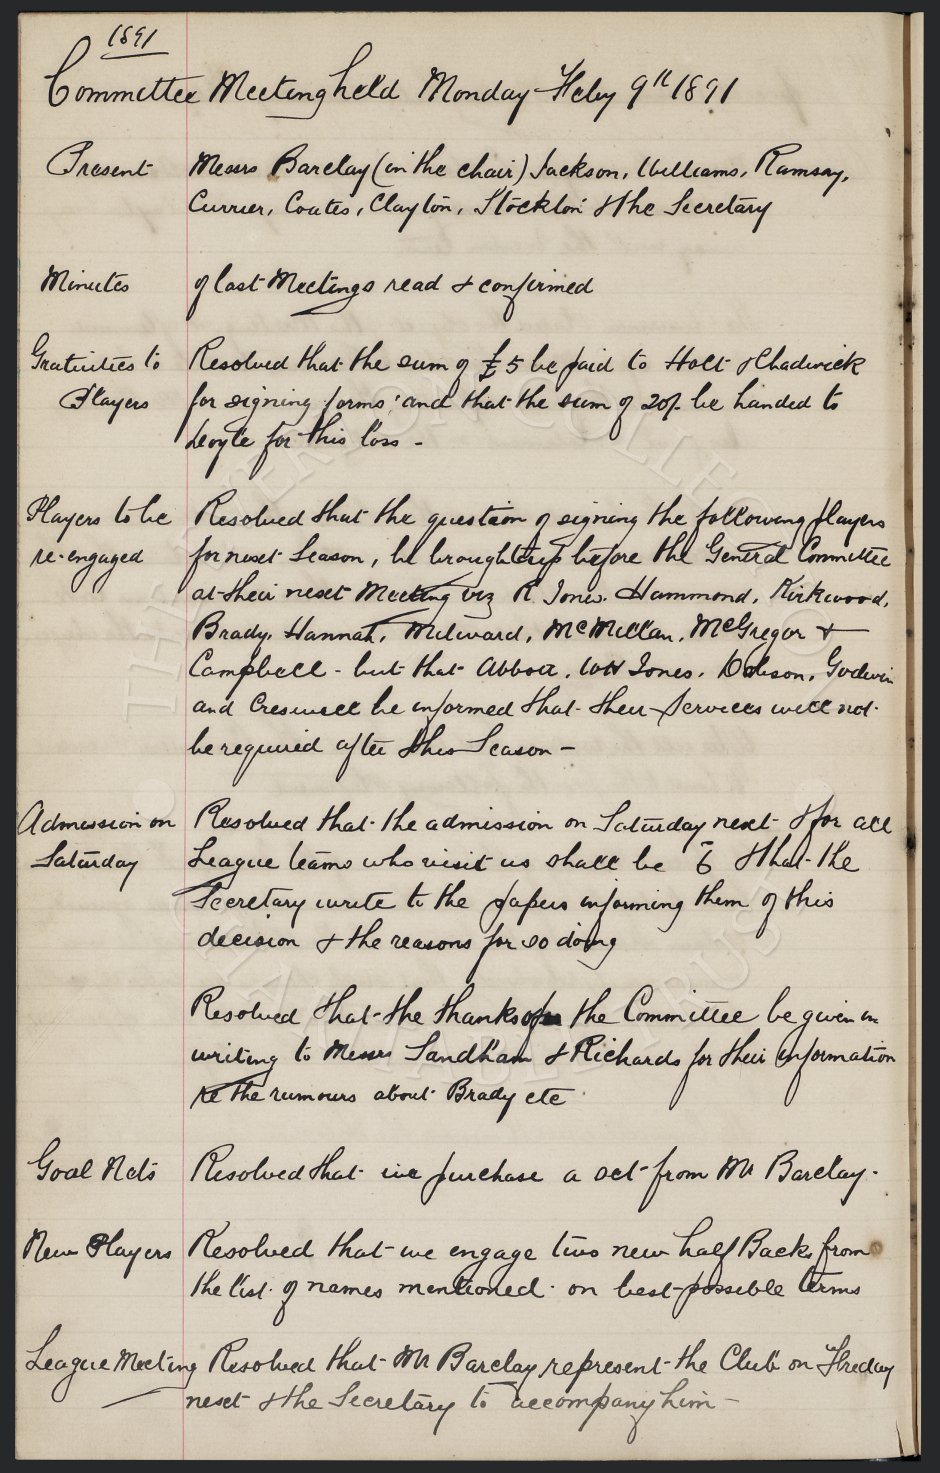 1891
Committee Meeting held Monday Feby 9th 1891
Present Messrs Barclay (in the chair) Jackson, Williams, Ramsay,
Currier, Coates, Clayton, Stockton & the Secretary
Minutes of last Meetings read & confirmed
Gratuities to Resolved that the sum of £5 be paid to Holt & Chadwick
Players for signing forms; and that the sum of 20/- be handed to
Doyle for this loss -
Players to be Resolved that the question of signing the following players
re-engaged for next Season, be brought up before the General Committee
at their next Meeting viz R. Jones. Hammond, Kirkwood,
Brady, Hannah, Milward, McMillan, McGregor &
Campbell - but that Abbott, WH Jones, Dobson, Godwin
and Creswell be informed that their Services will not
be required after this Season -
Admission on Resolved that the admission on Saturday next & for all
Saturday League teams who visit us shall be 6 & that the
Secretary write to the papers informing them of this
decision & the reasons for so doing
Resolved that the thanks of the Committee be given in
writing to Messrs Sandham & Richards for their information
re the rumours about Brady etc
Goal Nets Resolved that we purchase a set from Mr Barclay.
New Players Resolved that we engage two new half Backs from
the list of names mentioned on best possible terms
League Meeting Resolved that Mr Barclay represent the Club on Friday
next & the Secretary to accompany him -